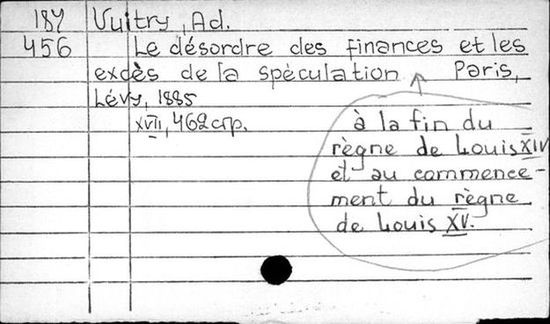 187 Vuitry, Ad.
456 Le désordre des finances et les
excès de la spéculation ↑ Paris,
Lévy, 1885
XVII, 462 стр.
à la fin du
règne de Louis XIV
et au commence-
ment du règne
de Louis XV.